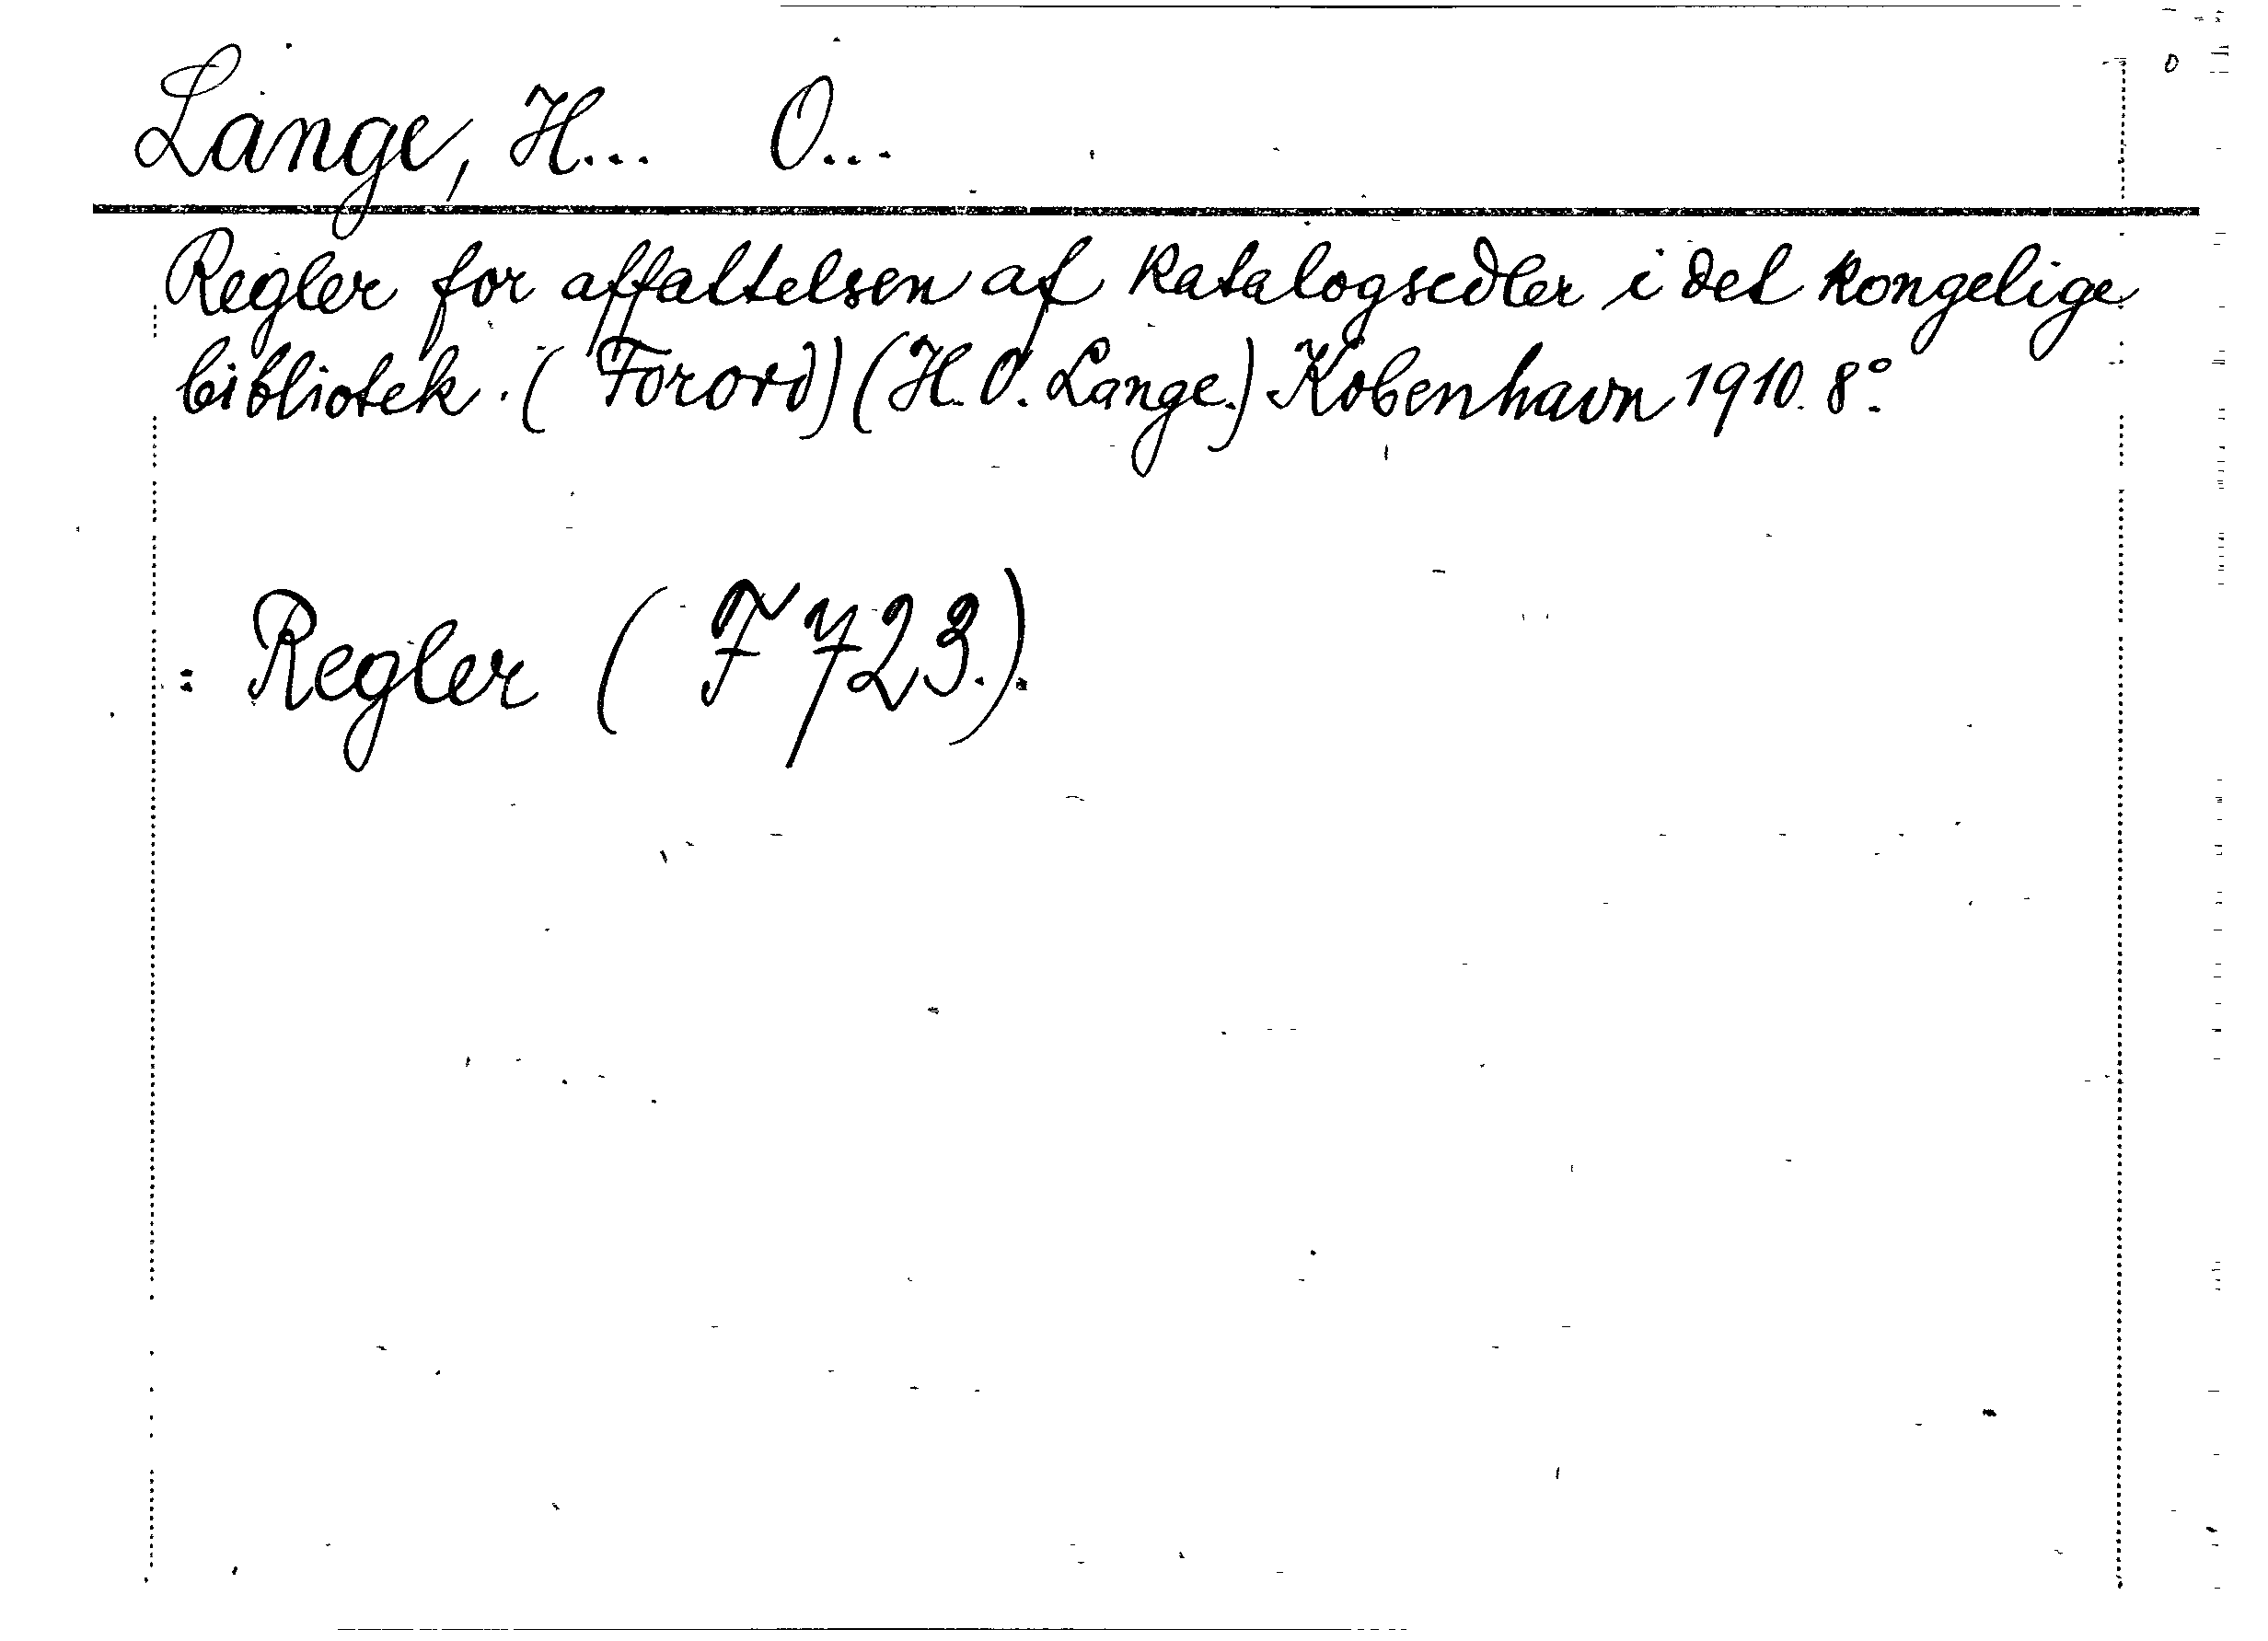 Lange, H... O...
Regler for affattelsen af katalogsedler i det kongelige
bibliotek. (Forord) (H. O. Lange.) København 1910. 8°.
= Regler (F 723.).